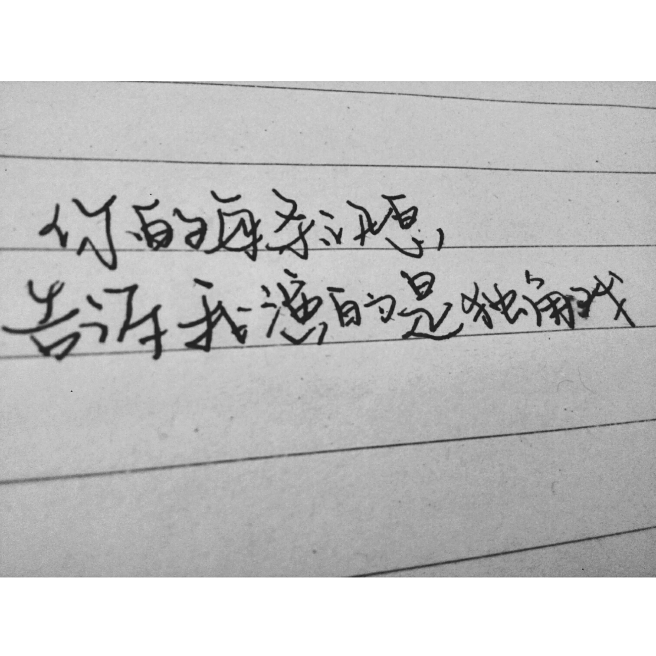 你的每条讯息,
告诉我演的是独角戏